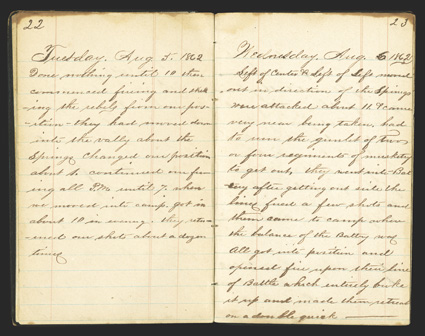 22
Tuesday, Aug 5, 1862
Done nothing until 10 then
commenced firing and shell-
ing the rebels from our pos-
ition - they had moved down
into the vally about the
Springs. Changed our position
about 4. continued our fir-
ing all P.M. until 7. when
we moved into camp. got in
about 10 in evening. they return-
ed our shots about a dozen
times
23
Wednesday, Aug 6 1862
Left of Center & Left of Left moved
out in direction of the Springs
were attacked about 11. & came
very near being taken. had
to run the gunlet of two
or four regiments of
to get out, they went into Bat-
tery after getting out side the
lines fired a few shots and
them came to camp where
the balance of the Battery was
All got into position and
opened fire upon their line
of Battle which entirely broke
it up and made them retreat
on a double quick